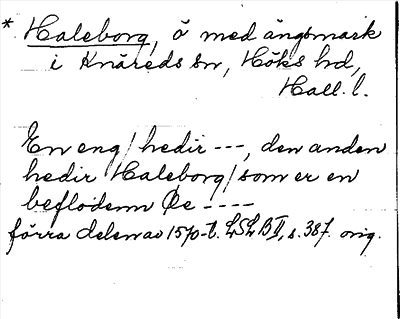 * Haleborg, ö med ängsmark
i Knäreds sn, Höks hd,
Hall. l.
En eng / hedir ---, den anden
hedir Haleborg / som er en
beflødenn Øe ----
förra delen av 1570-t. LSLB II, s. 387. orig.